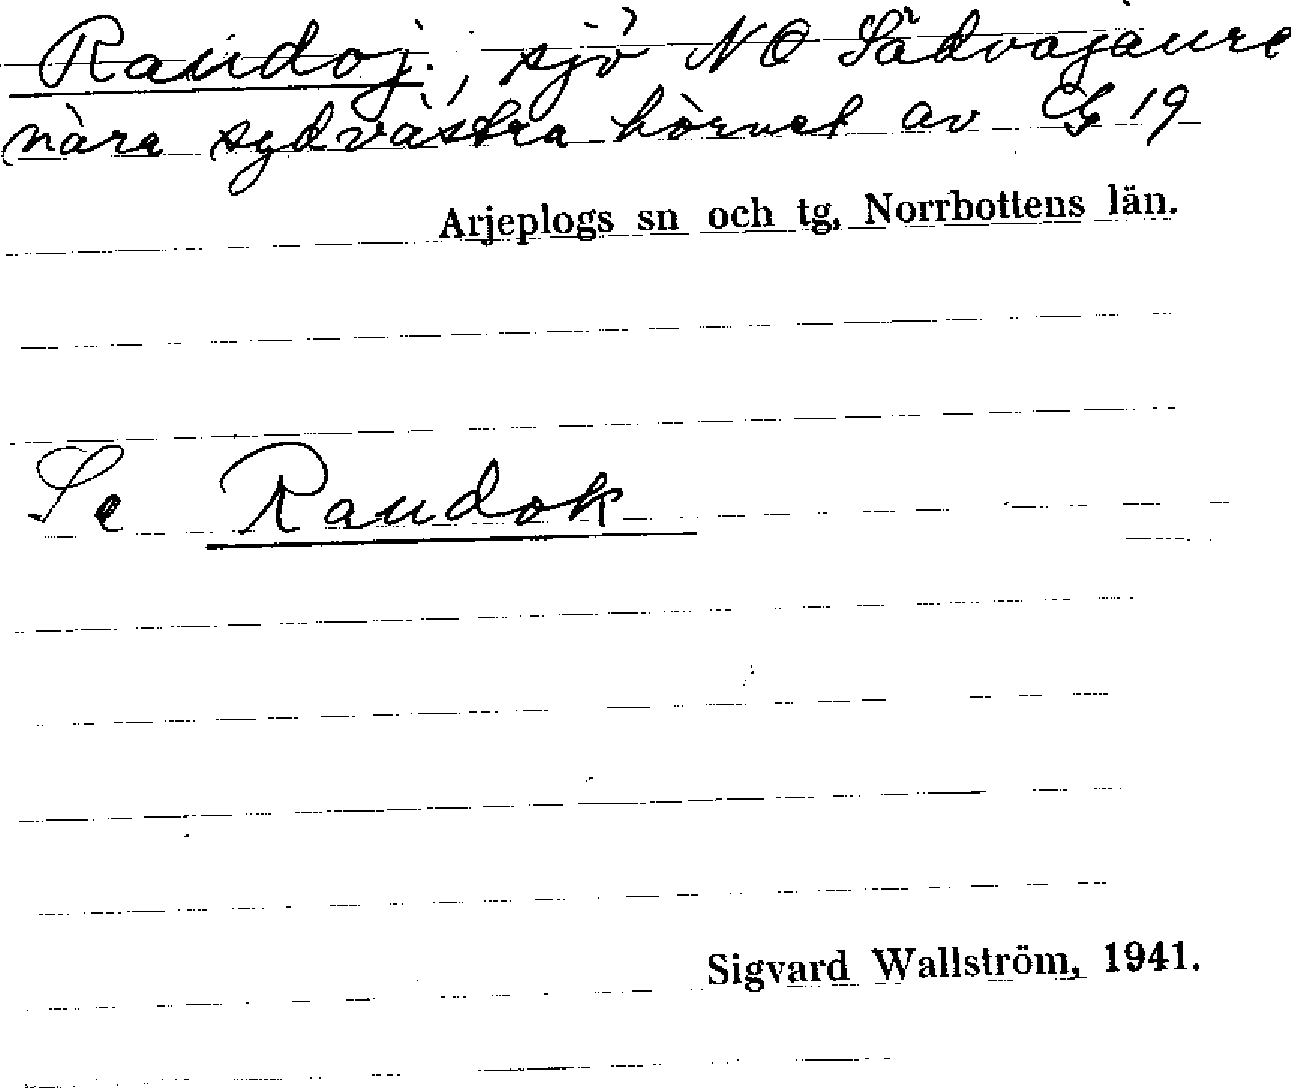 Raudoj., sjö NO Sädvajaure
nära sydvästra hörnet av G 19
Arjeplogs sn och tg, Norrbottens län.
Se Raudok
Sigvard Wallström, 1941.